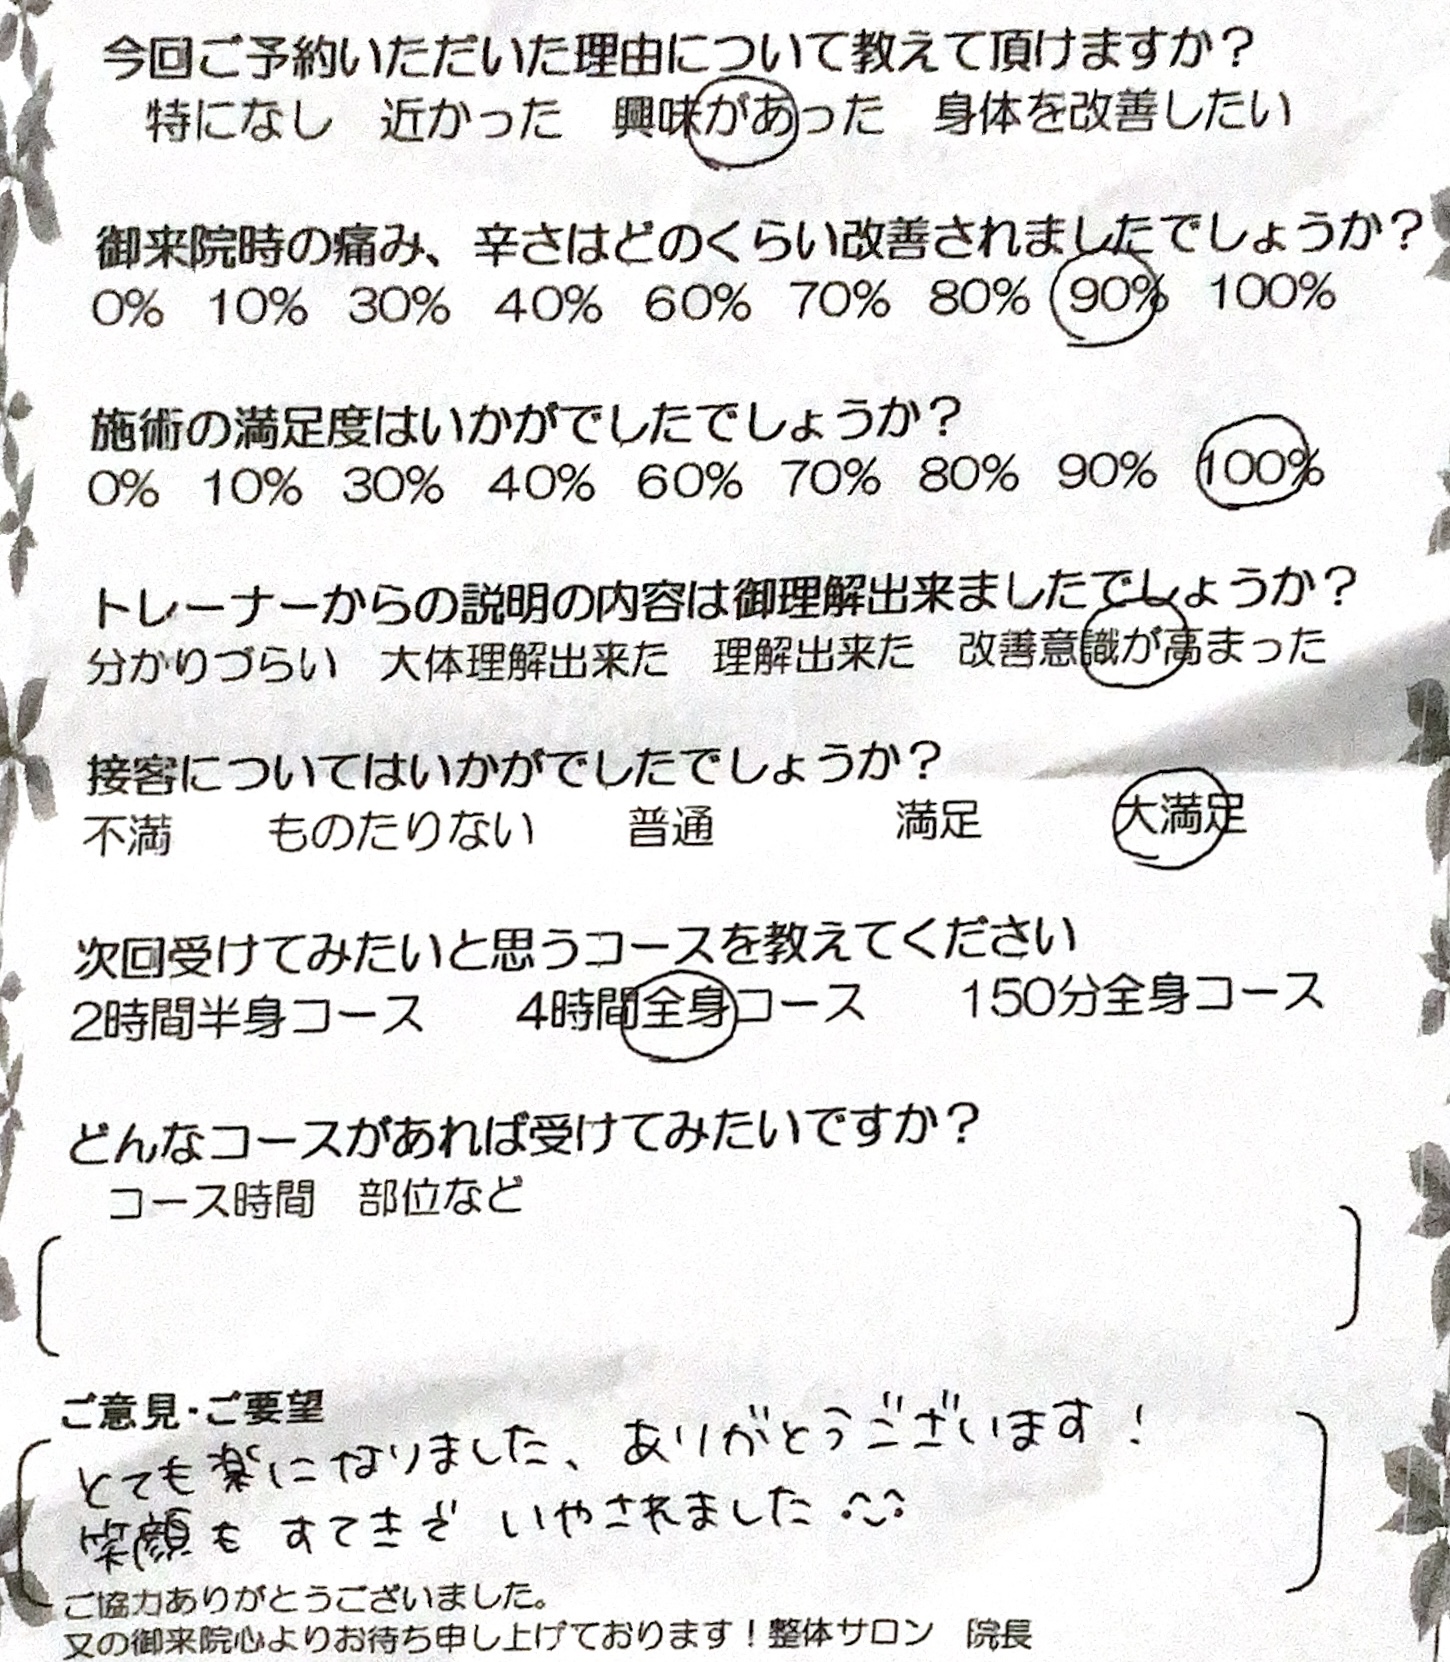 今回ご予約いただいた理由について教えて頂けますか？
特になし 近かった 興味があった 身体を改善したい
御来院時の痛み、辛さはどのくらい改善されましたでしょうか？
0% 10% 30% 40% 60% 70% 80% 90% 100%
施術の満足度はいかがでしたでしょうか？
0% 10% 30% 40% 60% 70% 80% 90% 100%
トレーナーからの説明の内容は御理解出来ましたでしょうか？
分かりづらい 大体理解出来た 理解出来た 改善意識が高まった
接客についてはいかがでしたでしょうか？
不満 ものたりない 普通 満足 大満足
次回受けてみたいと思うコースを教えてください
2時間半身コース 4時間全身コース 150分全身コース
どんなコースがあれば受けてみたいですか？
コース時間 部位など
ご意見・ご要望
とても楽になりました、ありがとうございます！
笑顔も すてきで いやされました
ご協力ありがとうございました。
又の御来院心よりお待ち申し上げております！整体サロン 院長